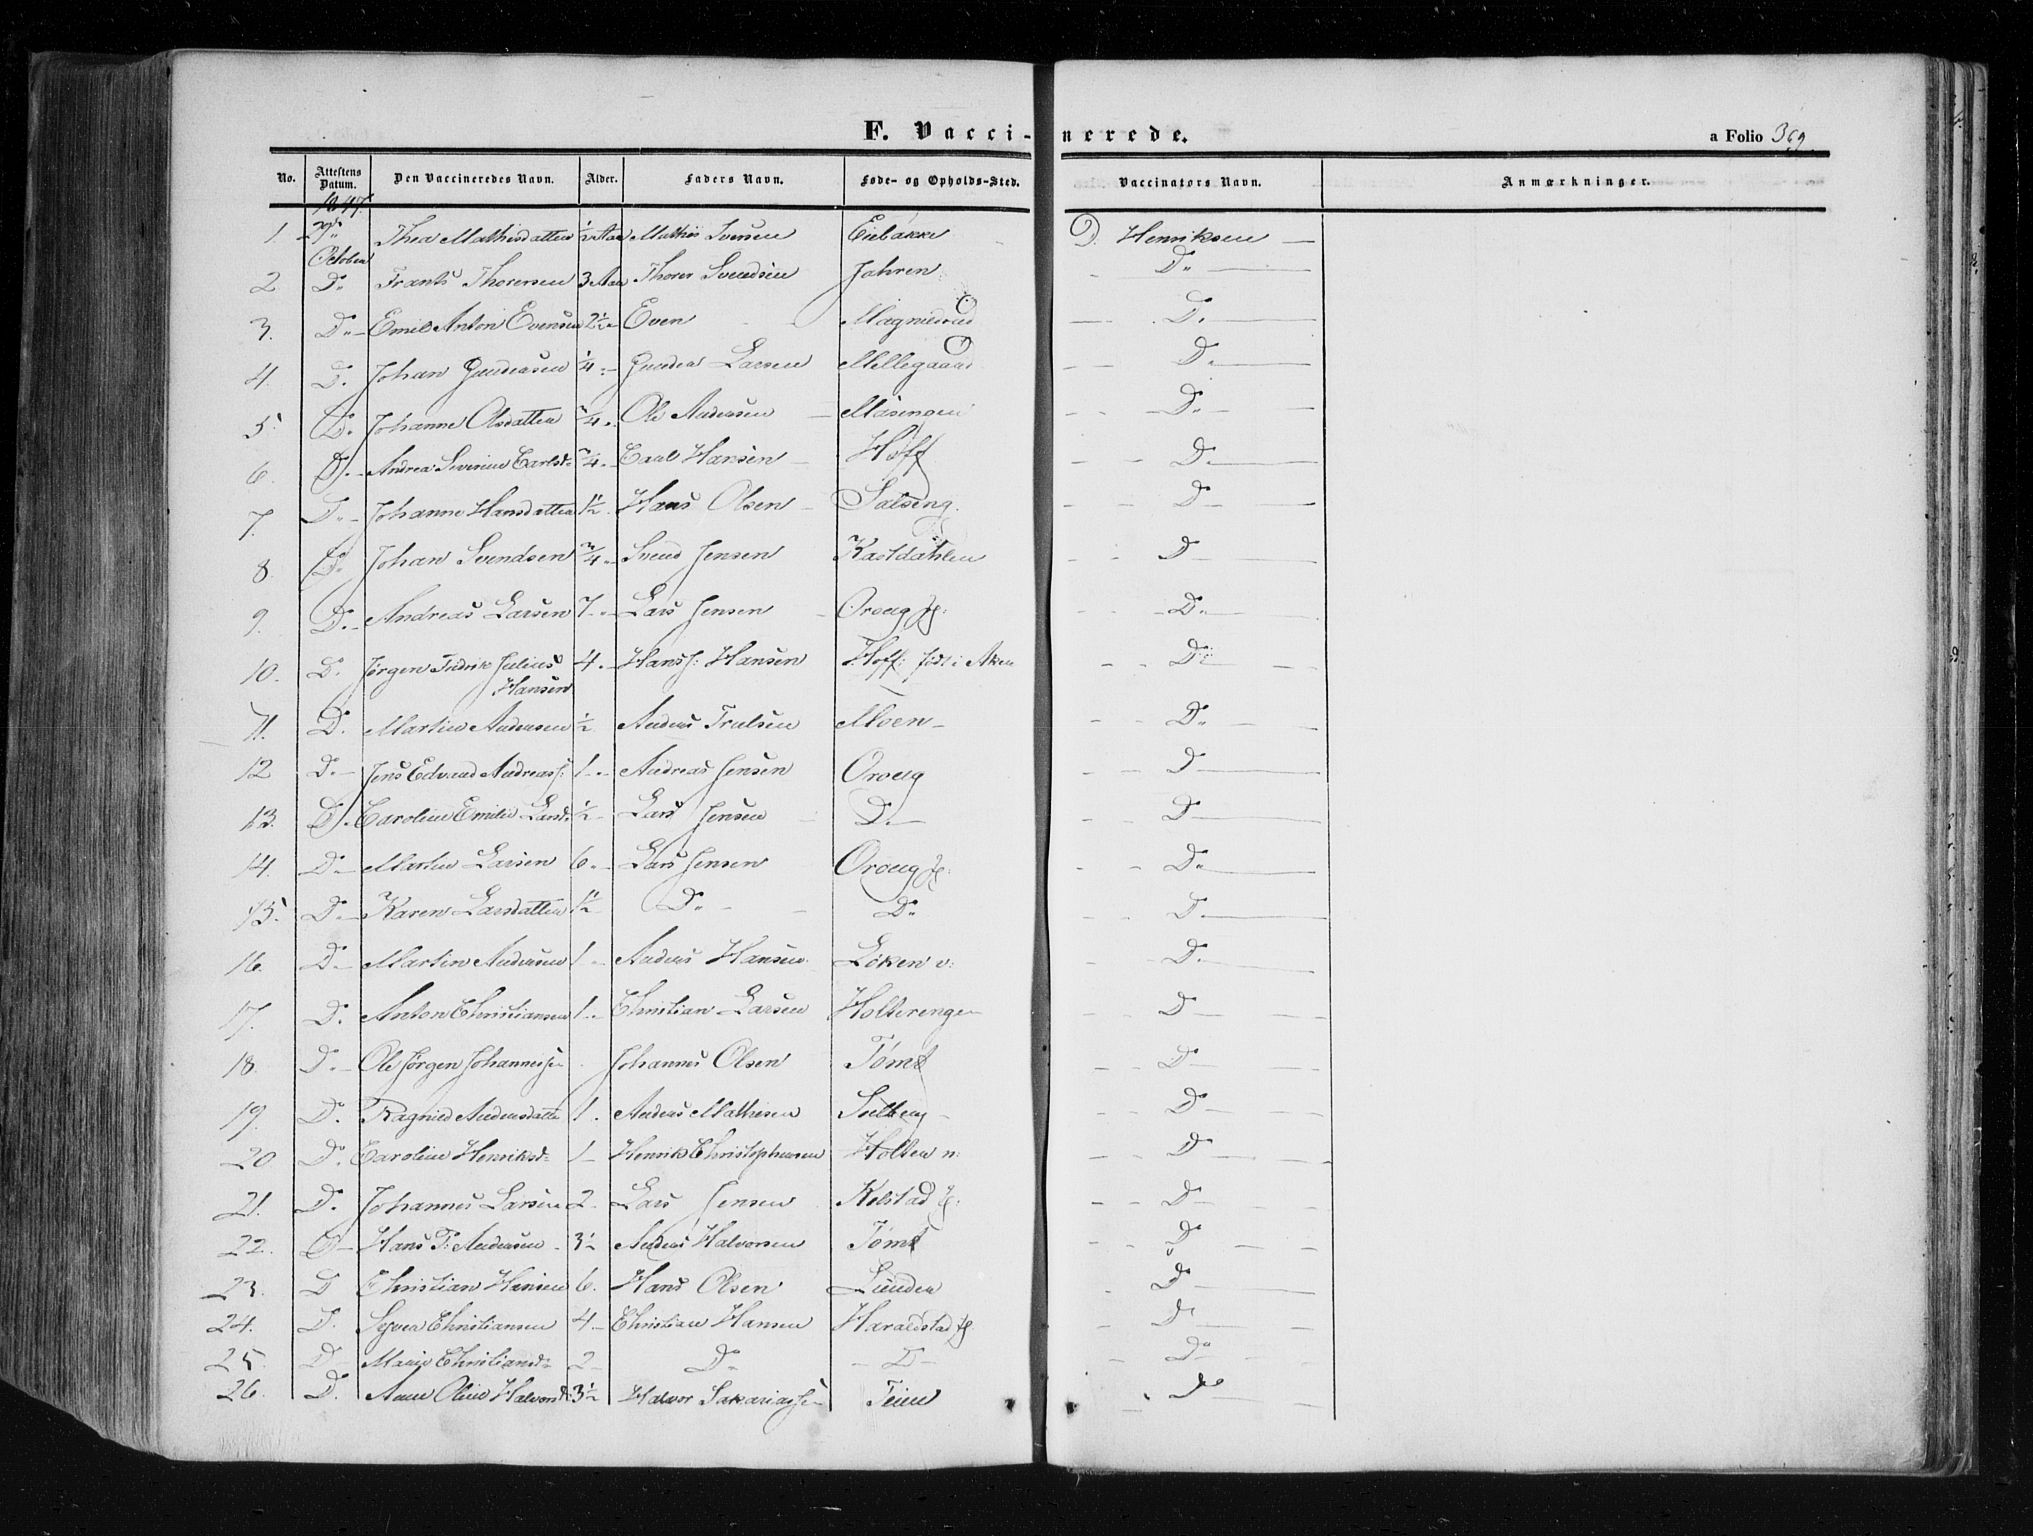 F. Vaccinerede.
a Folio 369.
No. Attestens Datum. Den Vaccineredes Navn. Alder. Faders Navn. Føde- og Opholds-Sted. Vaccinators Navn. Anmærkninger.
1847.
1. 29de October Thea Mathisdatter ½ Aar Mathis Iversen D. Henriksen
2 Do Frants Thoresen 3 Aar Thorer Svendsen Jahren Do
3. Do Emil Anton Evensen 2½ Even Magnesrud Do
4. Do Johan Gundersen ¼ Gunder Larsen Mellegaard Do
5. Do Johanne Olsdatter ¾ Ole Andersen Masengen Do
6. Do Andrea Severine Carlsd: ¾ Carl Hansen Hoff Do
7. Do Johanne Hansdatter 1½ Hans Olsen Do
8. Do Johan Svendsen ¾ Svend Jensen Kastdahlen Do
9. Do Andreas Larsen 7 Lars Jensen Oroug Do
10. Do Jørgen Fredrik Julius Hansen 4 Hans J: Hansen Hoff: født i Aker Do
11. Do Martin Andersen ½ Anders Trulsen Moen Do
12 Do Jens Edvard Andreass: 1 Andreas Jensen Oroug Do
13. Do Caroline Emilie Larsd: ½ Lars Jensen Do Do
14. Do Martin Larsen 6 Lars Jensen Oroug Do
15. Do Karen Larsdatter 1½ Do Do Do
16. Do Martin Andersen 1 Anders Hansen Løken v: Do
17. Do Anton Christiansen 1 Christian Larsen Holterengen Do
18. Do Ole Jørgen Johannessen Johannes Olsen Tømt Do
19. Do Ragnild Andersdatter 1. Anders Mathisen Solberg Do
20 Do Caroline Henriksd: 1 Henrik Christophersen Holter n: Do
21. Do Johannes Larsen 2 Lars Jensen Kolstad Do
22. Do Hans T: Andersen 3½ Anders Halvorsen Tømt Do
23. Do Christian Hansen 6. Hans Olsen Lunder Do
24. Do Syver Christiansen 4 Christian Hansen Haraldstad Do
25 Do Marie Christiansd: 2 Do Do Do
26. Do Anne Oline Halvorsd: 3½ Halvor Sakariassen Teien Do